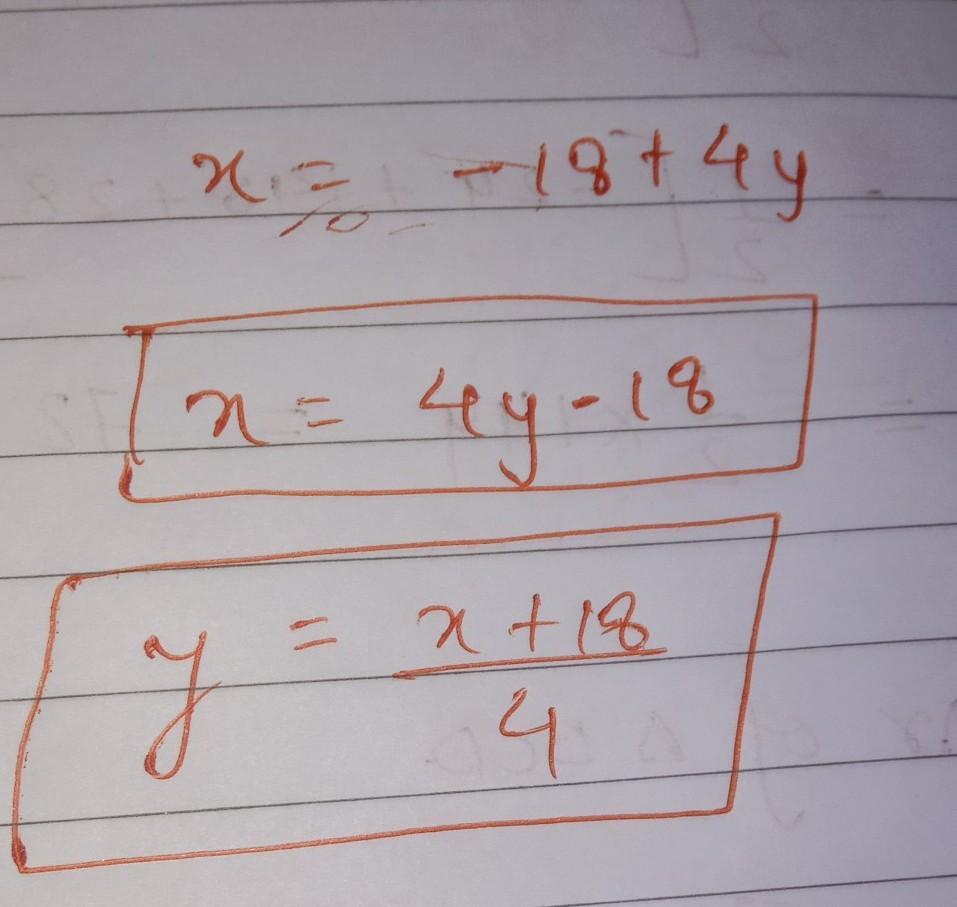 x = -18 + 4y
x = 4y - 18
y = x + 18
4